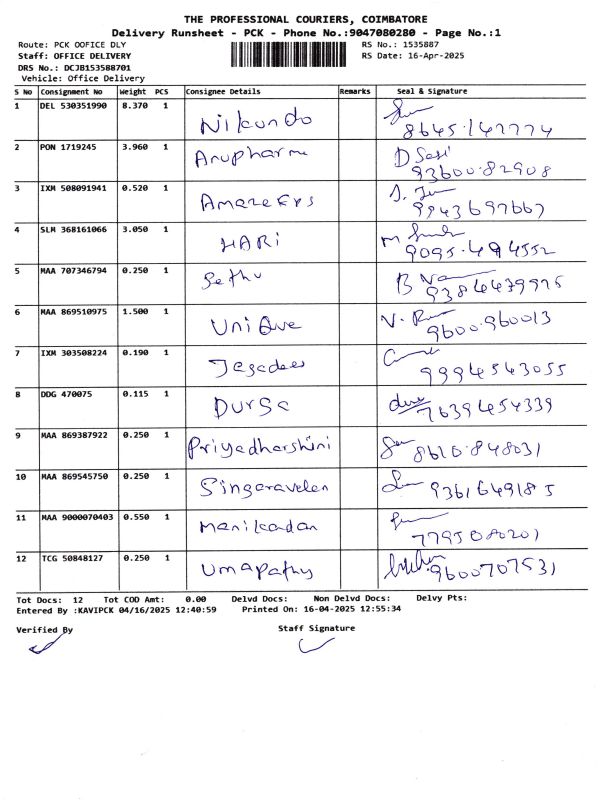 THE PROFESSIONAL COURIERS, COIMBATORE
Delivery Runsheet - PCK - Phone No.:9047080280 - Page No.:1
Route: PCK OOFICE DLY RS No.: 1535887
Staff: OFFICE DELIVERY RS Date: 16-Apr-2025
DRS No.: DCJB153588701
Vehicle: Office Delivery
S No Consignment No Weight PCS Consignee Details Remarks Seal & Signature
1 DEL 530351990 8.370 1 Nikundo
8645.147774
2 PON 1719245 3.960 1 Anupharma D Sasi
93600.82908
3 IXM 508091941 0.520 1 Amaze Exs
9943697667
4 SLM 368161066 3.050 1 HARi
9095.494552
5 MAA 707346794 0.250 1 Sethu
9384479975
6 MAA 869510975 1.500 1 UniQue
9600.960013
7 IXM 303508224 0.190 1 Jegadees
9994543055
8 DDG 470075 0.115 1 Durga
7639454339
9 MAA 869387922 0.250 1 Priyadharshini
8610.848031
10 MAA 869545750 0.250 1 Singaravelan
9361649185
11 MAA 9000070403 0.550 1 Manikandan
7795080201
12 TCG 50848127 0.250 1 Umapathy
9600707531
Tot Docs: 12 Tot COD Amt: 0.00 Delvd Docs: Non Delvd Docs: Delvy Pts:
Entered By :KAVIPCK 04/16/2025 12:40:59 Printed On: 16-04-2025 12:55:34
Verified By Staff Signature